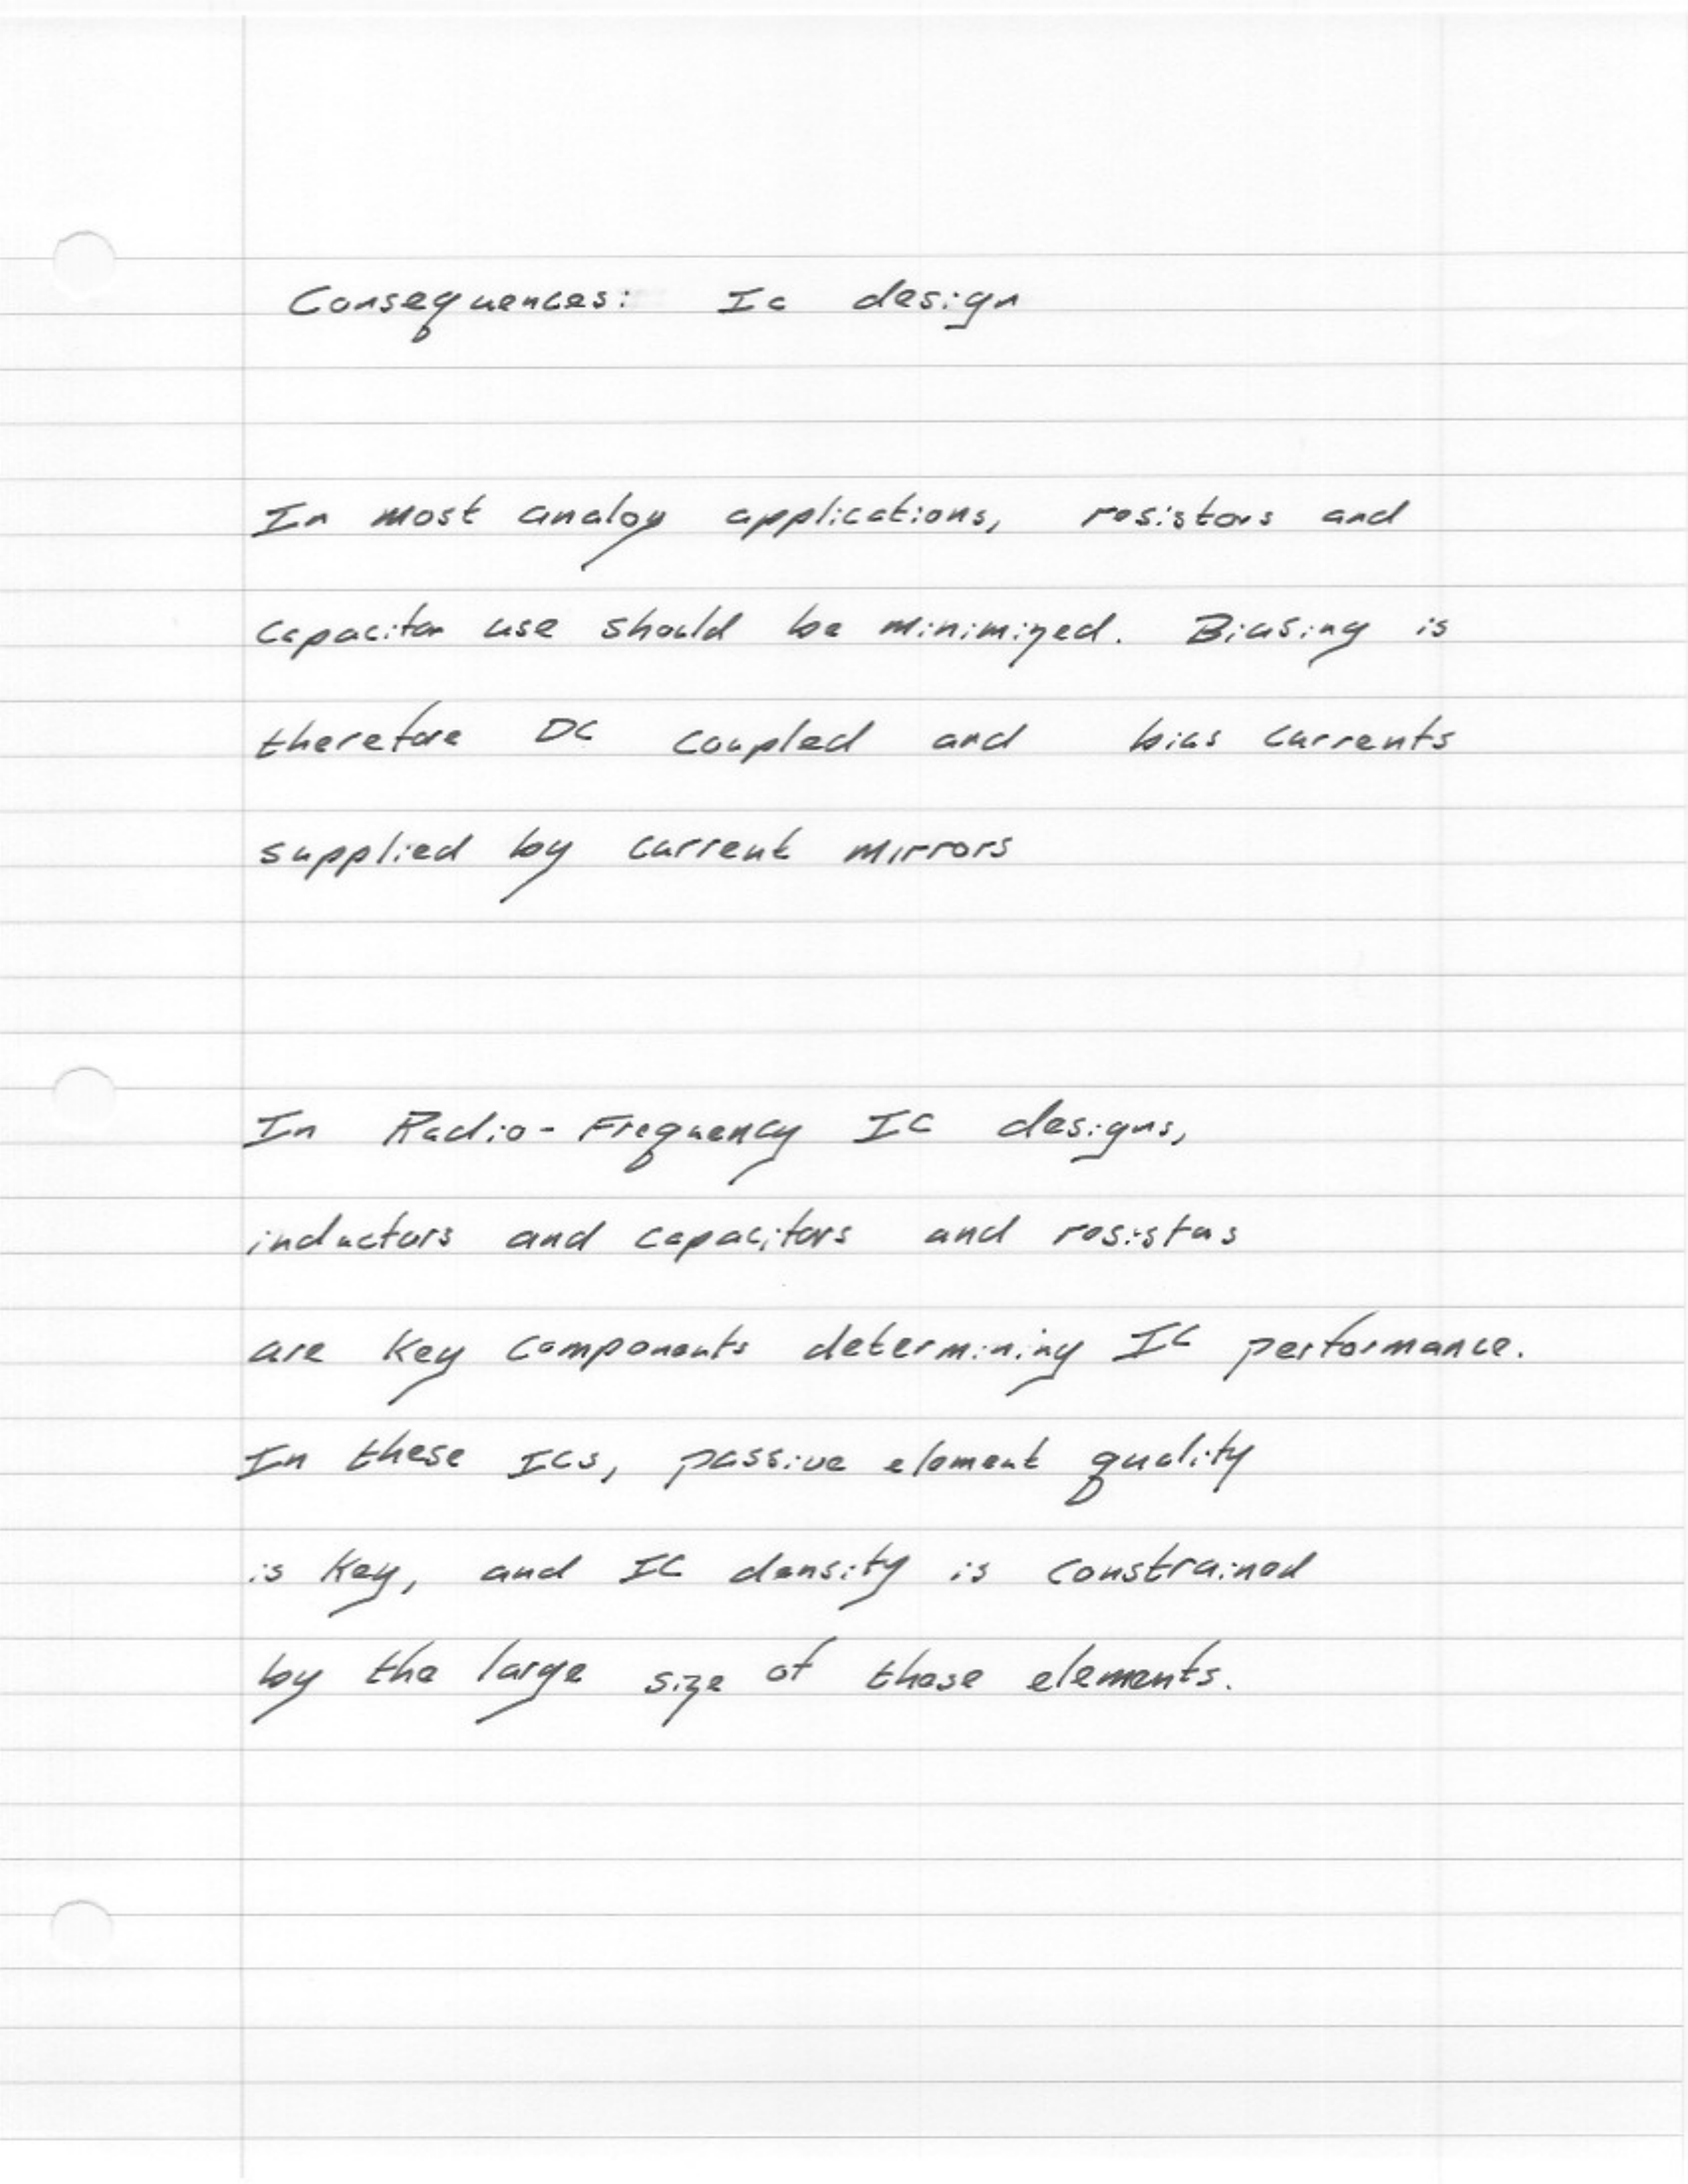 Consequences: Ic design
In most analog applications, resistors and
capacitor use should be minimized. Biasing is
therefore DC coupled and bias currents
supplied by current mirrors
In Radio-Frequency IC designs,
inductors and capacitors and resistors
are key components determining IC performance.
In these ICs, passive element quality
is key, and IC density is constrained
by the large size of these elements.